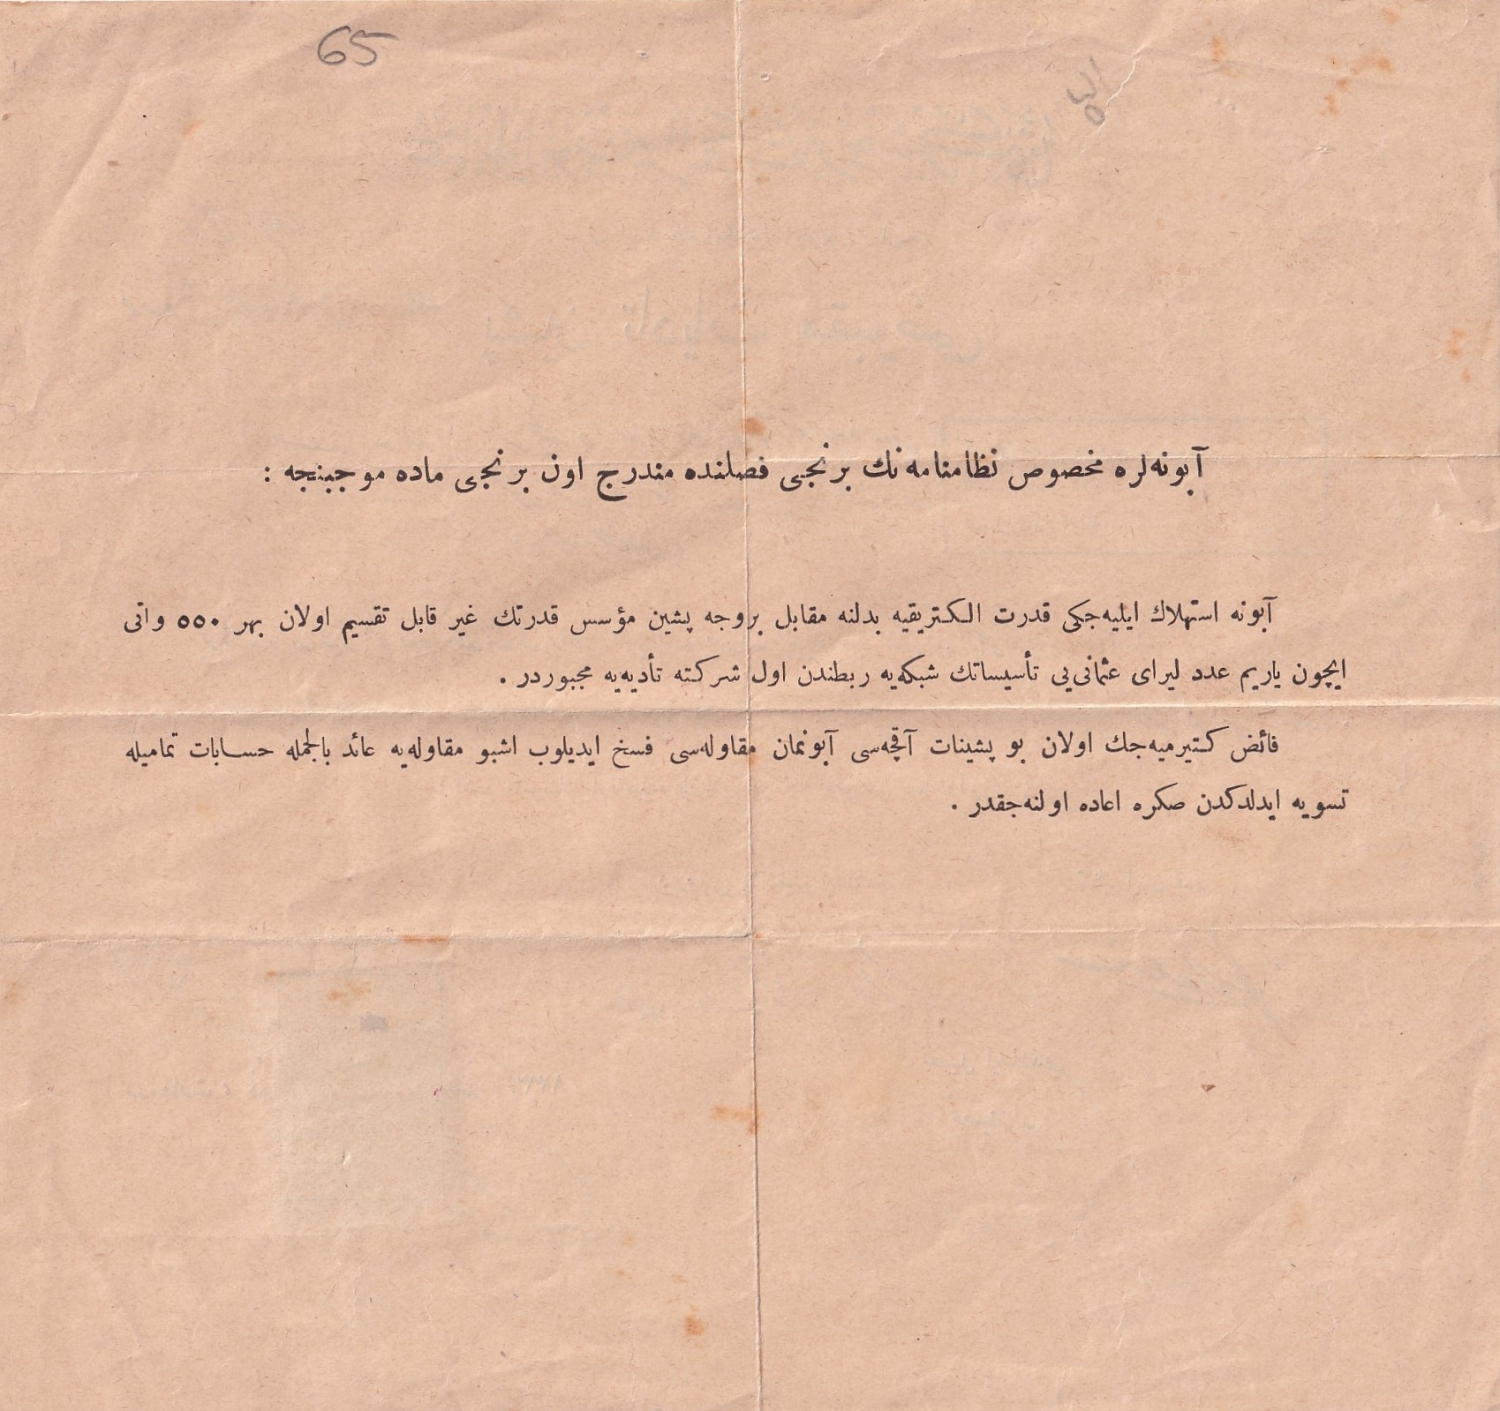 65
آبونه‌لره مخصوص نظامنامه‌نك برنجی فصلنده مندرج اون برنجی ماده موجبنجه :
آبونه استهلاك ایلیه‌جكی قدرت الكتریقیه بدلنه مقابل بروجه پشین مؤسس قدرتك غیر قابل تقسیم اولان بهر ٥٥٠ واتی
ایچون یاریم عدد لیرای عثمانی‌یی تأسیساتك شبكه‌یه ربطندن اول شركته تأدیه‌یه مجبوردر .
فائض كتیرمیه‌جك اولان بو پشینات آقچه‌سی آبونمان مقاوله‌سی فسخ ایدیلوب اشبو مقاوله‌یه عائد بالجمله حسابات تمامیله
تسویه ایدلدكدن صكره اعاده اولنه‌جقدر .